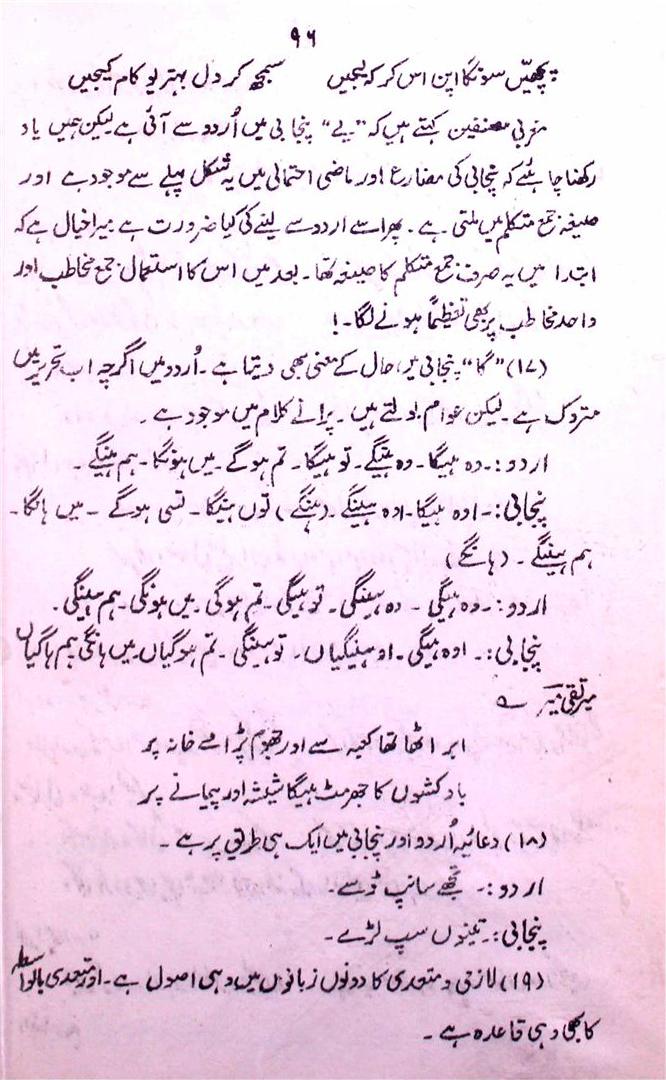 ۹۶
پچھیں سونگا اپن اس کر کہ لیجیں    سمجھ کر دل بہتر یو کام کیجیں
مغربی مصنفین کہتے ہیں کہ "یے" پنجابی میں اُردو سے آئی ہے لیکن ہمیں یاد
رکھنا چاہئے کہ پنجابی کی مضارع اور ماضی احتمالی میں یہ شکل پہلے سے موجود ہے اور
صیغہ جمع متکلم میں ملتی ہے۔ پھر اسے اردو سے لینے کی کیا ضرورت ہے میرا خیال ہے کہ
ابتدا میں یہ صرف جمع متکلم کا صیغہ تھا۔ بعد میں اس کا استعمال جمع مخاطب اور
واحد مخاطب پر بھی تعظیماً ہونے لگا۔!
(۱۷) "گا" پنجابی میں حال کے معنی بھی دیتا ہے۔ اُردو میں اگرچہ اب تحریر میں
متروک ہے۔ لیکن عوام بولتے ہیں۔ پرانے کلام میں موجود ہے۔
اردو:۔ وہ ہیگا۔ وہ ہینگے۔ تو ہیگا۔ تم ہوگے۔ میں ہونگا۔ ہم ہینگے۔
پنجابی:۔ اوہ ہیگا۔ اوہ ہینگے۔ (ہنگے) توں ہیگا۔ تسی ہوگے۔ میں ہانگا۔
ہم ہینگے۔ (ہانگے)
اردو:۔ وہ ہیگی۔ وہ ہینگی۔ تو ہیگی۔ تم ہوگی۔ میں ہونگی۔ ہم ہینگی۔
پنجابی:۔ اوہ ہیگی۔ او ہینگیاں۔ تو ہینگی۔ تم ہوگیاں میں ہانگی ہم ہاگیاں
میر تقی میرؔ ؎
ابر اٹھا تھا کعبہ سے اور جھوم پڑا مے خانہ پر
بادکشوں کا جھرمٹ ہیگا شیشہ اور پیمانے پر
(۱۸) دعائیہ اُردو اور پنجابی میں ایک ہی طریق پر ہے۔
اردو:۔ تجھے سانپ ڈسے۔
پنجابی:۔ تینوں سپ لڑے۔
(۱۹) لازمی و متعدی کا دونوں زبانوں میں وہی اصول ہے۔ اور متعدی بالواسطہ
کا بھی وہی قاعدہ ہے۔